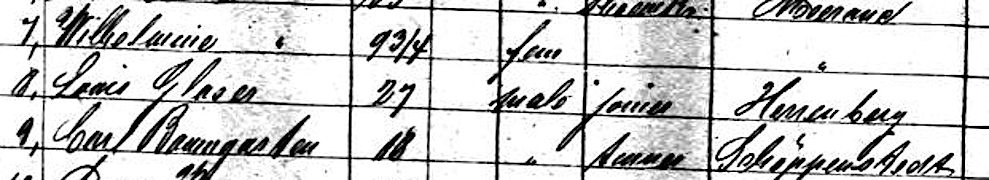 7, Wilhelmine " 9 3/4 fem "
8, Louis Glaser 27 male joiner Herrenberg
9, Carl Baumgarten 18 " Schöppenstedt